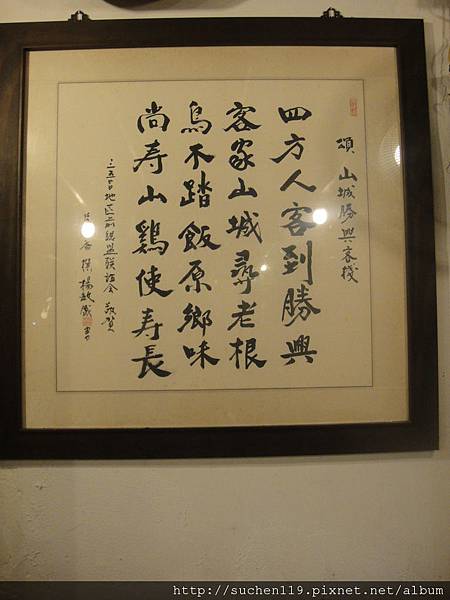 頌 山城勝興客棧
四方人客到勝興
客家山城尋老根
鳥不踏飯原鄉味
尚寿山鷄使寿長
三五〇〇地區
敬賀
撰 楊
http://suchen119.pixnet.net/album